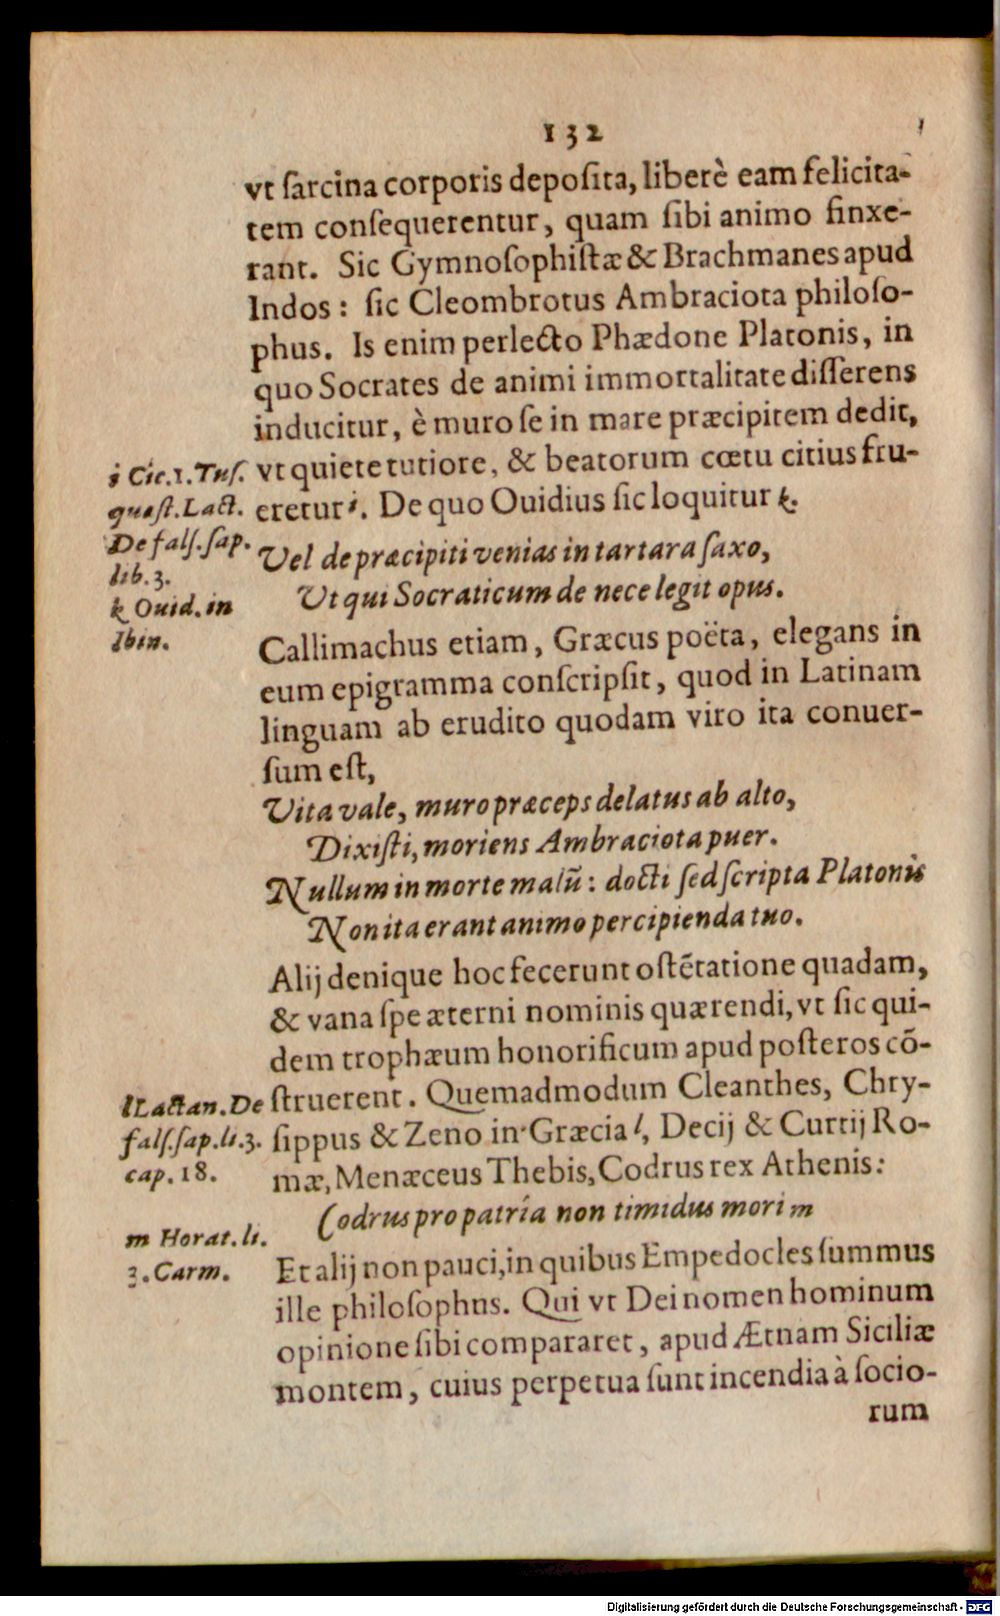 132
vt ſarcina corporis depoſita, liberè eam felicita-
tem conſequerentur, quam ſibi animo finxe-
rant. Sic Gymnoſophiſtæ & Brachmanes apud
Indos: ſic Cleombrotus Ambraciota philoſo-
phus. Is enim perlecto Phædone Platonis, in
quo Socrates de animi immortalitate diſſerens
inducitur, è muro ſe in mare præcipitem dedit,
vt quiete tutiore, & beatorum cœtu citius fru-
eretur i. De quo Ouidius ſic loquitur k.
i Cic.1.Tuſ.
quæſt.Lact.
De falſ.ſap.
lib.3.
k Ouid.in
Ibin.
Vel de præcipiti venias in tartara ſaxo,
Vt qui Socraticum de nece legit opus.
Callimachus etiam, Græcus poëta, elegans in
eum epigramma conſcripſit, quod in Latinam
linguam ab erudito quodam viro ita conuer-
ſum eſt,
Vita vale, muro præceps delatus ab alto,
Dixiſti, moriens Ambraciota puer.
Nullum in morte malũ: docti ſed ſcripta Platonis
Non ita erant animo percipienda tuo.
Alij denique hoc fecerunt oſtẽtatione quadam,
& vana ſpe æterni nominis quærendi, vt ſic qui-
dem trophæum honorificum apud poſteros cõ-
ſtruerent. Quemadmodum Cleanthes, Chry-
ſippus & Zeno in Græcia l, Decij & Curtij Ro-
mæ, Menæceus Thebis, Codrus rex Athenis:
l Lactan.De
falſ.ſap.li.3.
cap.18.
Codrus pro patria non timidus mori m
m Horat.li.
3.Carm.
Et alij non pauci, in quibus Empedocles ſummus
ille philoſophus. Qui vt Dei nomen hominum
opinione ſibi compararet, apud Ætnam Siciliæ
montem, cuius perpetua ſunt incendia à ſocio-
rum
Digitalisierung gefördert durch die Deutsche Forschungsgemeinschaft - DFG